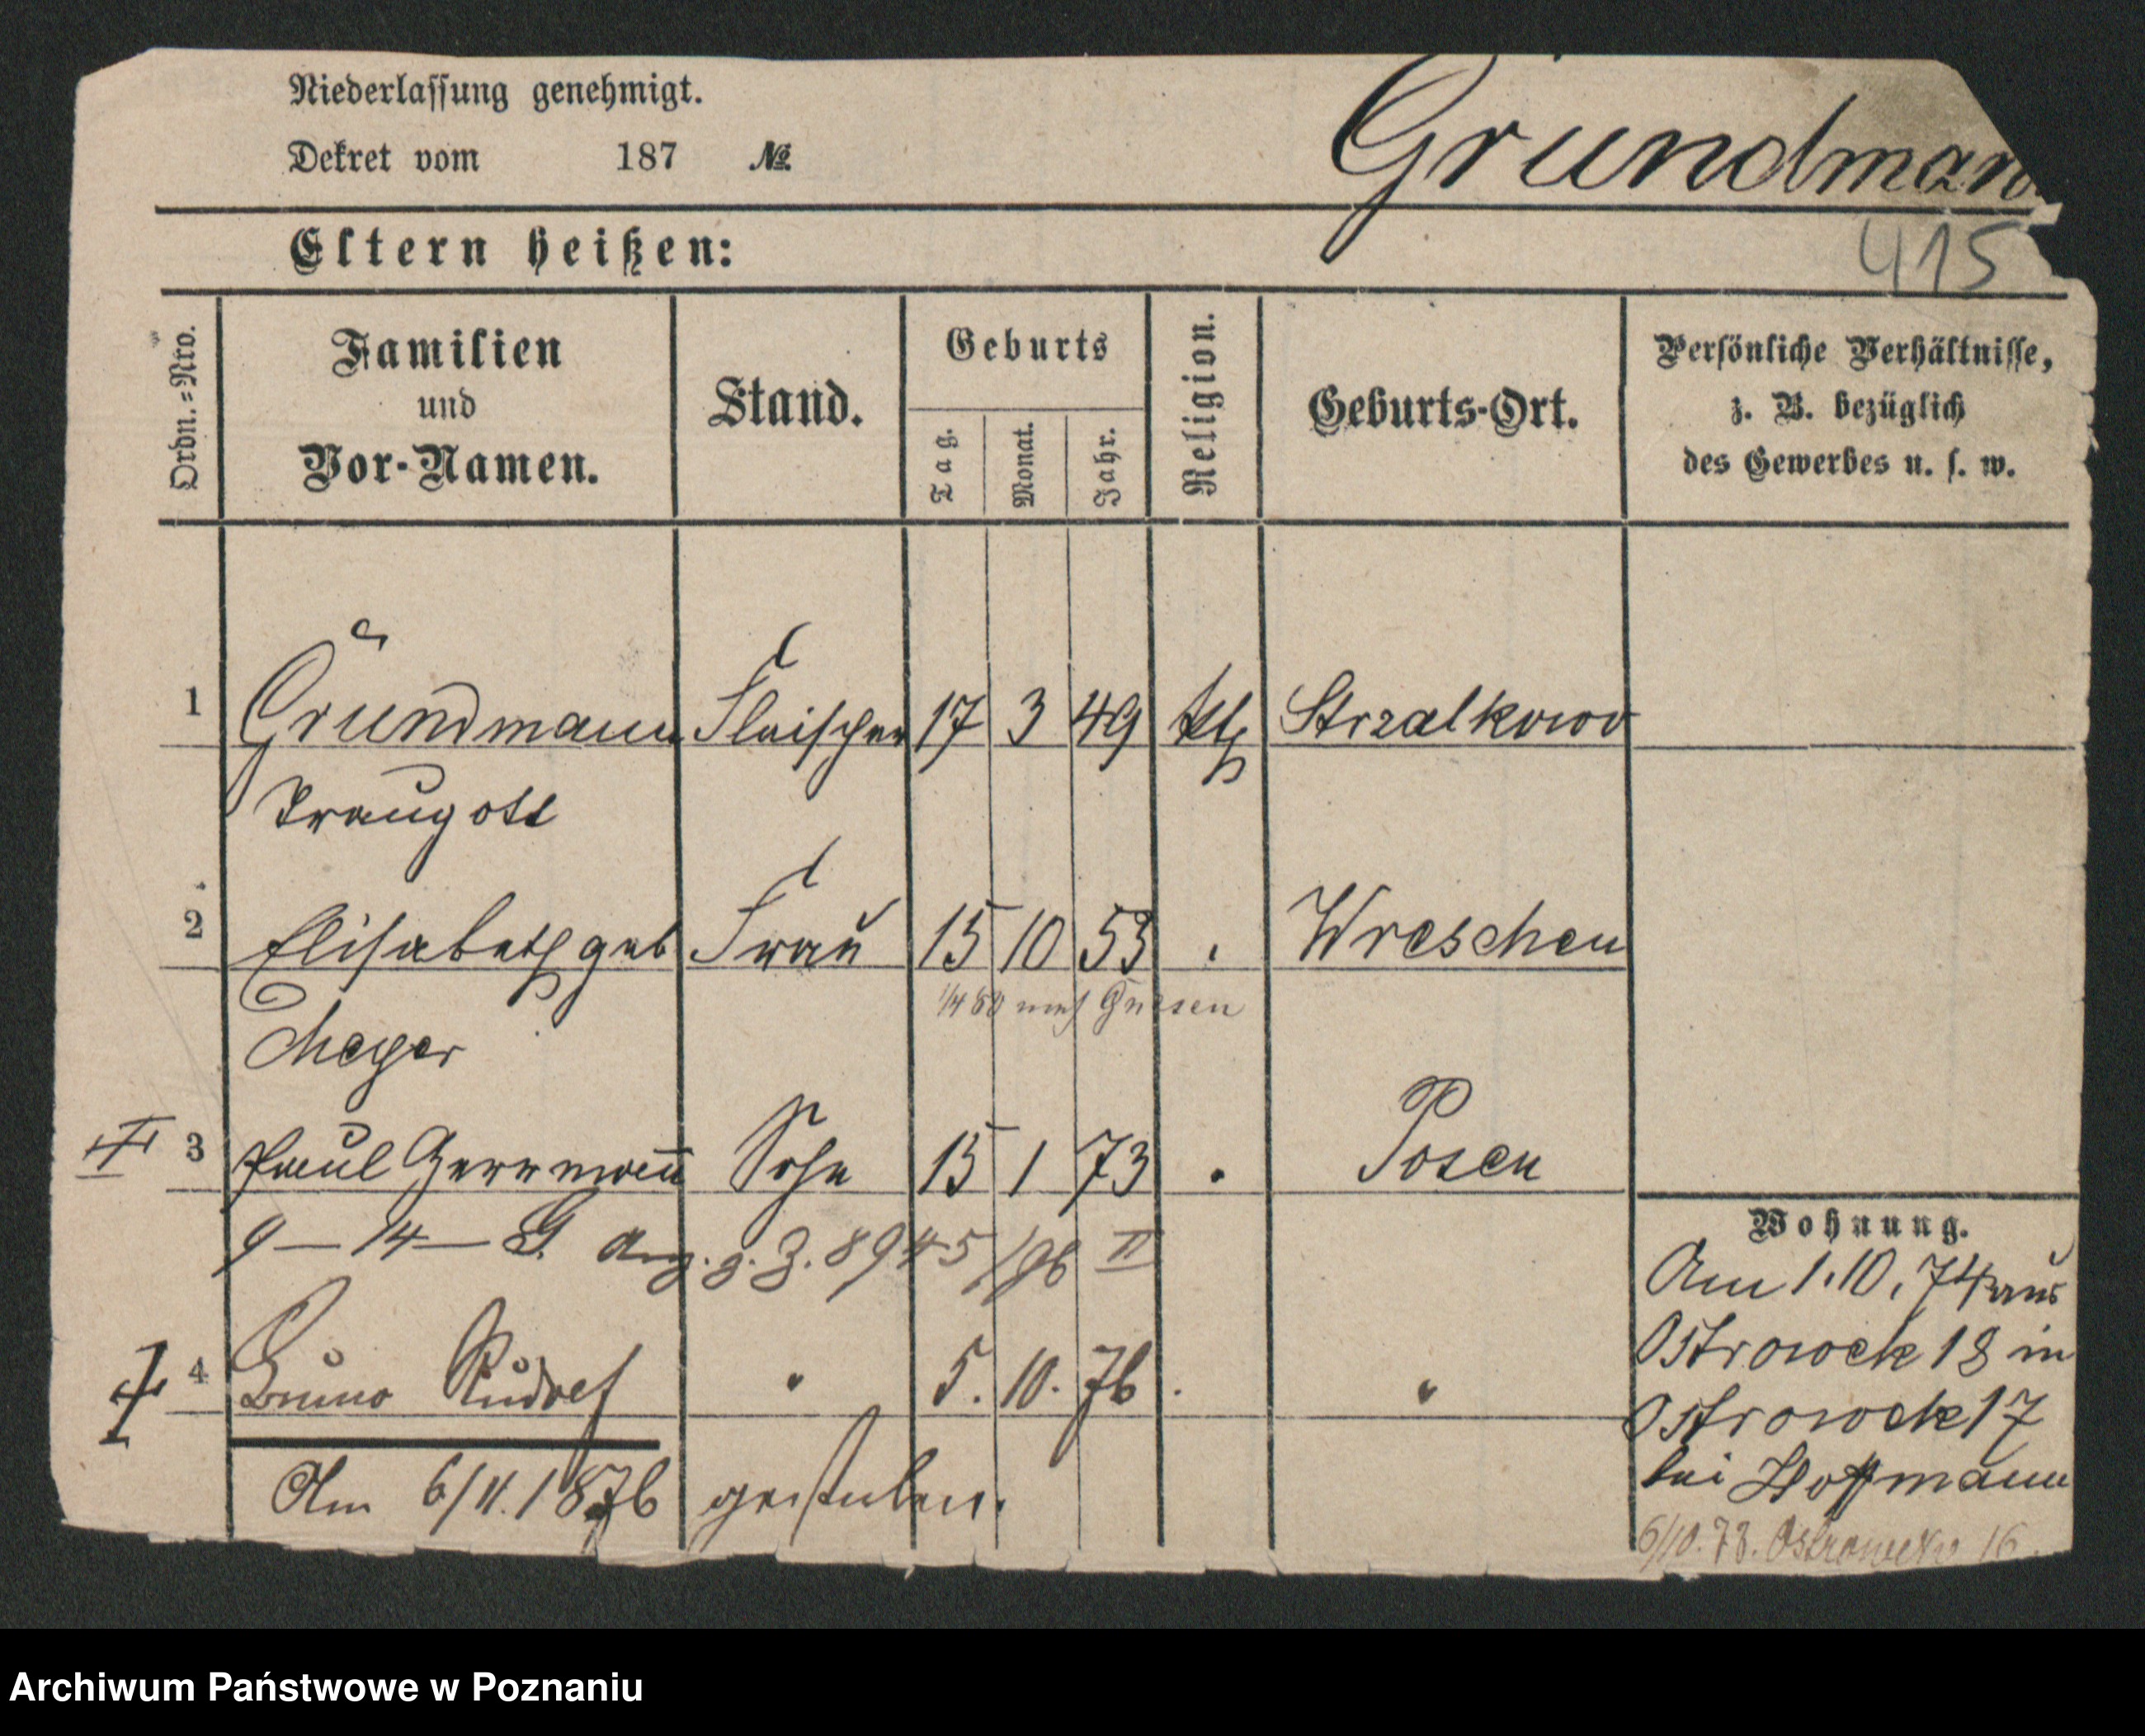 Niederlassung genehmigt.
Dekret vom 187 №
Grundmann
Eltern heißen:
415
Ordn.=Nro.
Familien
und
Vor-Namen.
Stand.
Geburts
Tag.
Monat.
Jahr.
Religion.
Geburts-Ort.
Persönliche Verhältnisse,
z. B. bezüglich
des Gewerbes u. s. w.
1 Grundmann Fleischer 17 3 49 kth Strzalkowo
Traugott
2 Elisabeth geb Frau 15 10 53 Wreschen
1/4 80 nach Gnesen
Meyer
3 Paul Herrmann Sohn 15 1 73 Posen
9 — 14 — G. z. 3. 8945/96 II
4 Bruno Rudolf " 5. 10. 76 . "
Am 6/11.1876 gestorben.
Wohnung.
Am 1.10.74 aus
Ostrowek 18 in
Ostrowek 17
bei Hoffmann
6/10.78. Ostrowek 16.
Archiwum Państwowe w Poznaniu